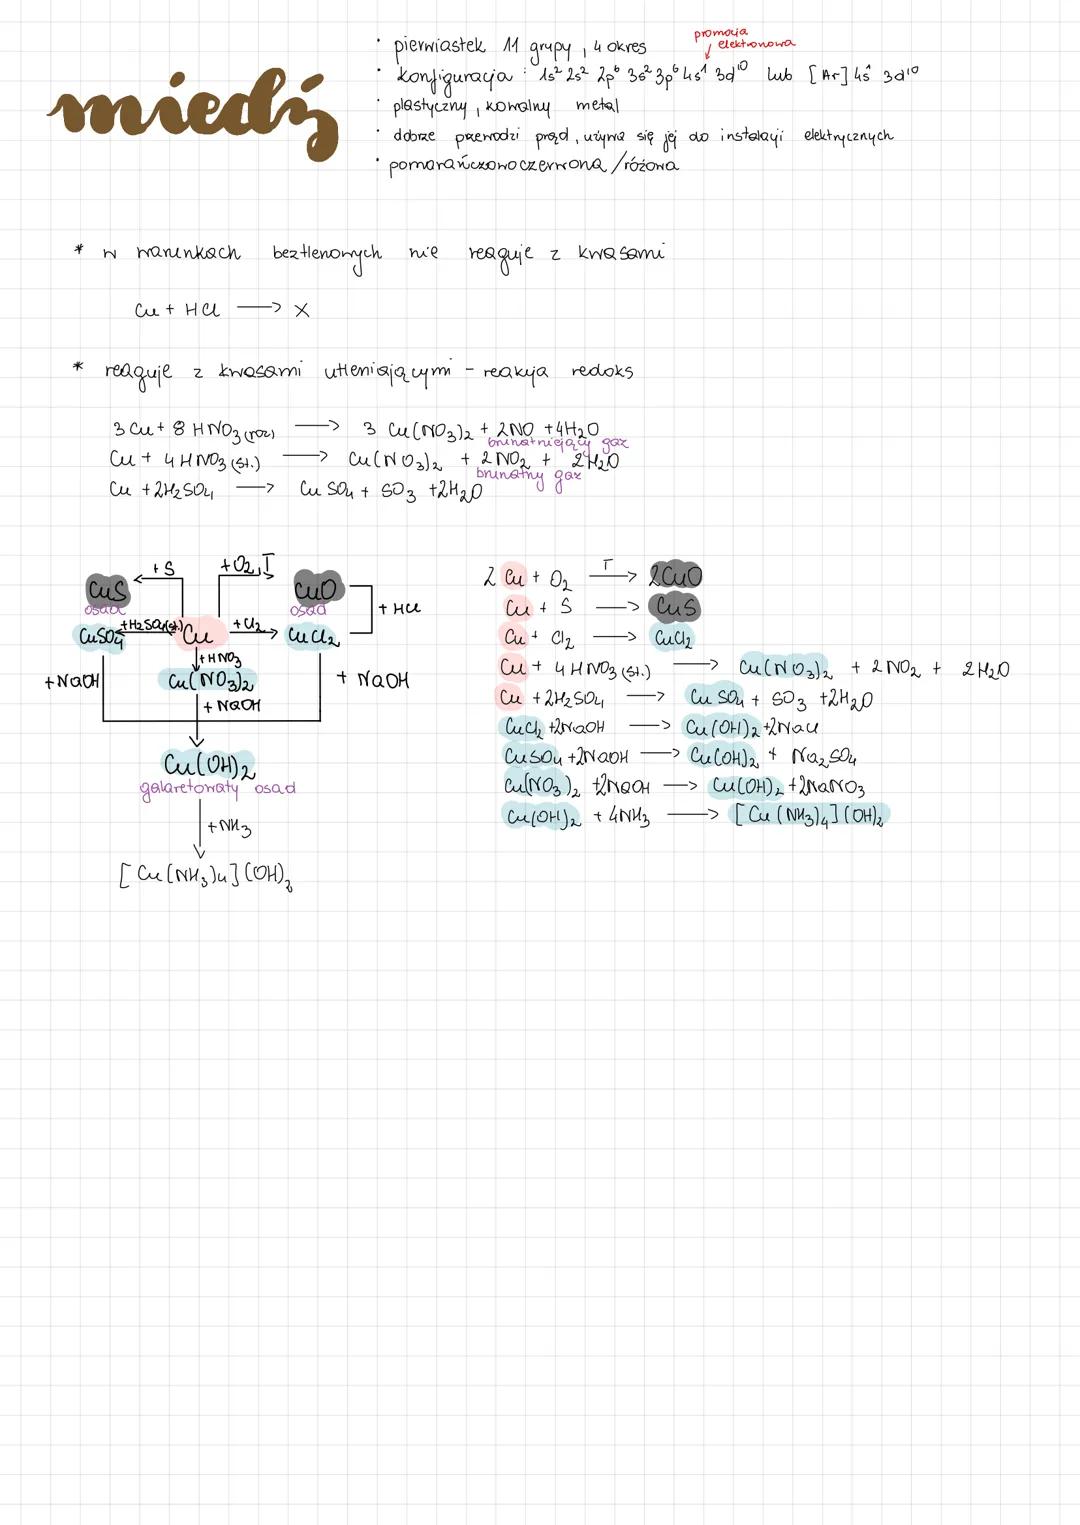 miedź
· pierwiastek 11 grupy, 4 okres
promocja elektronowa
· konfiguracja : 1s² 2s² 2p⁶ 3s² 3p⁶ 4s¹ 3d¹⁰ lub [Ar] 4s¹ 3d¹⁰
· plastyczny, kowalny metal
· dobrze przewodzi prąd, używa się jej do instalacji elektrycznych
· pomarańczowoczerwona /różowa
* w warunkach beztlenowych nie reaguje z kwasami
Cu + HCl → X
* reaguje z kwasami utleniającymi - reakcja redoks
3 Cu + 8 HNO₃ (roz) → 3 Cu(NO₃)₂ + 2NO + 4H₂O
brunatniejący gaz
Cu + 4 HNO₃ (st.) → Cu(NO₃)₂ + 2 NO₂ + 2H₂O
brunatny gaz
Cu + 2H₂SO₄ → CuSO₄ + SO₃ + 2H₂O
+ S
+ O₂, T
CuS
osad
CuO
osad
+ HCl
CuSO₄
+ H₂SO₄(st.)
Cu
+ Cl₂
CuCl₂
+ HNO₃
+ NaOH
Cu(NO₃)₂
+ NaOH
+ NaOH
Cu(OH)₂
galaretowaty osad
+ NH₃
[Cu(NH₃)₄](OH)₂
2 Cu + O₂ T → 2CuO
Cu + S → CuS
Cu + Cl₂ → CuCl₂
Cu + 4 HNO₃ (st.) → Cu(NO₃)₂ + 2 NO₂ + 2 H₂O
Cu + 2H₂SO₄ → CuSO₄ + SO₃ + 2H₂O
CuCl₂ + 2NaOH → Cu(OH)₂ + 2NaCl
CuSO₄ + 2NaOH → Cu(OH)₂ + Na₂SO₄
Cu(NO₃)₂ + 2NaOH → Cu(OH)₂ + 2NaNO₃
Cu(OH)₂ + 4NH₃ → [Cu(NH₃)₄](OH)₂